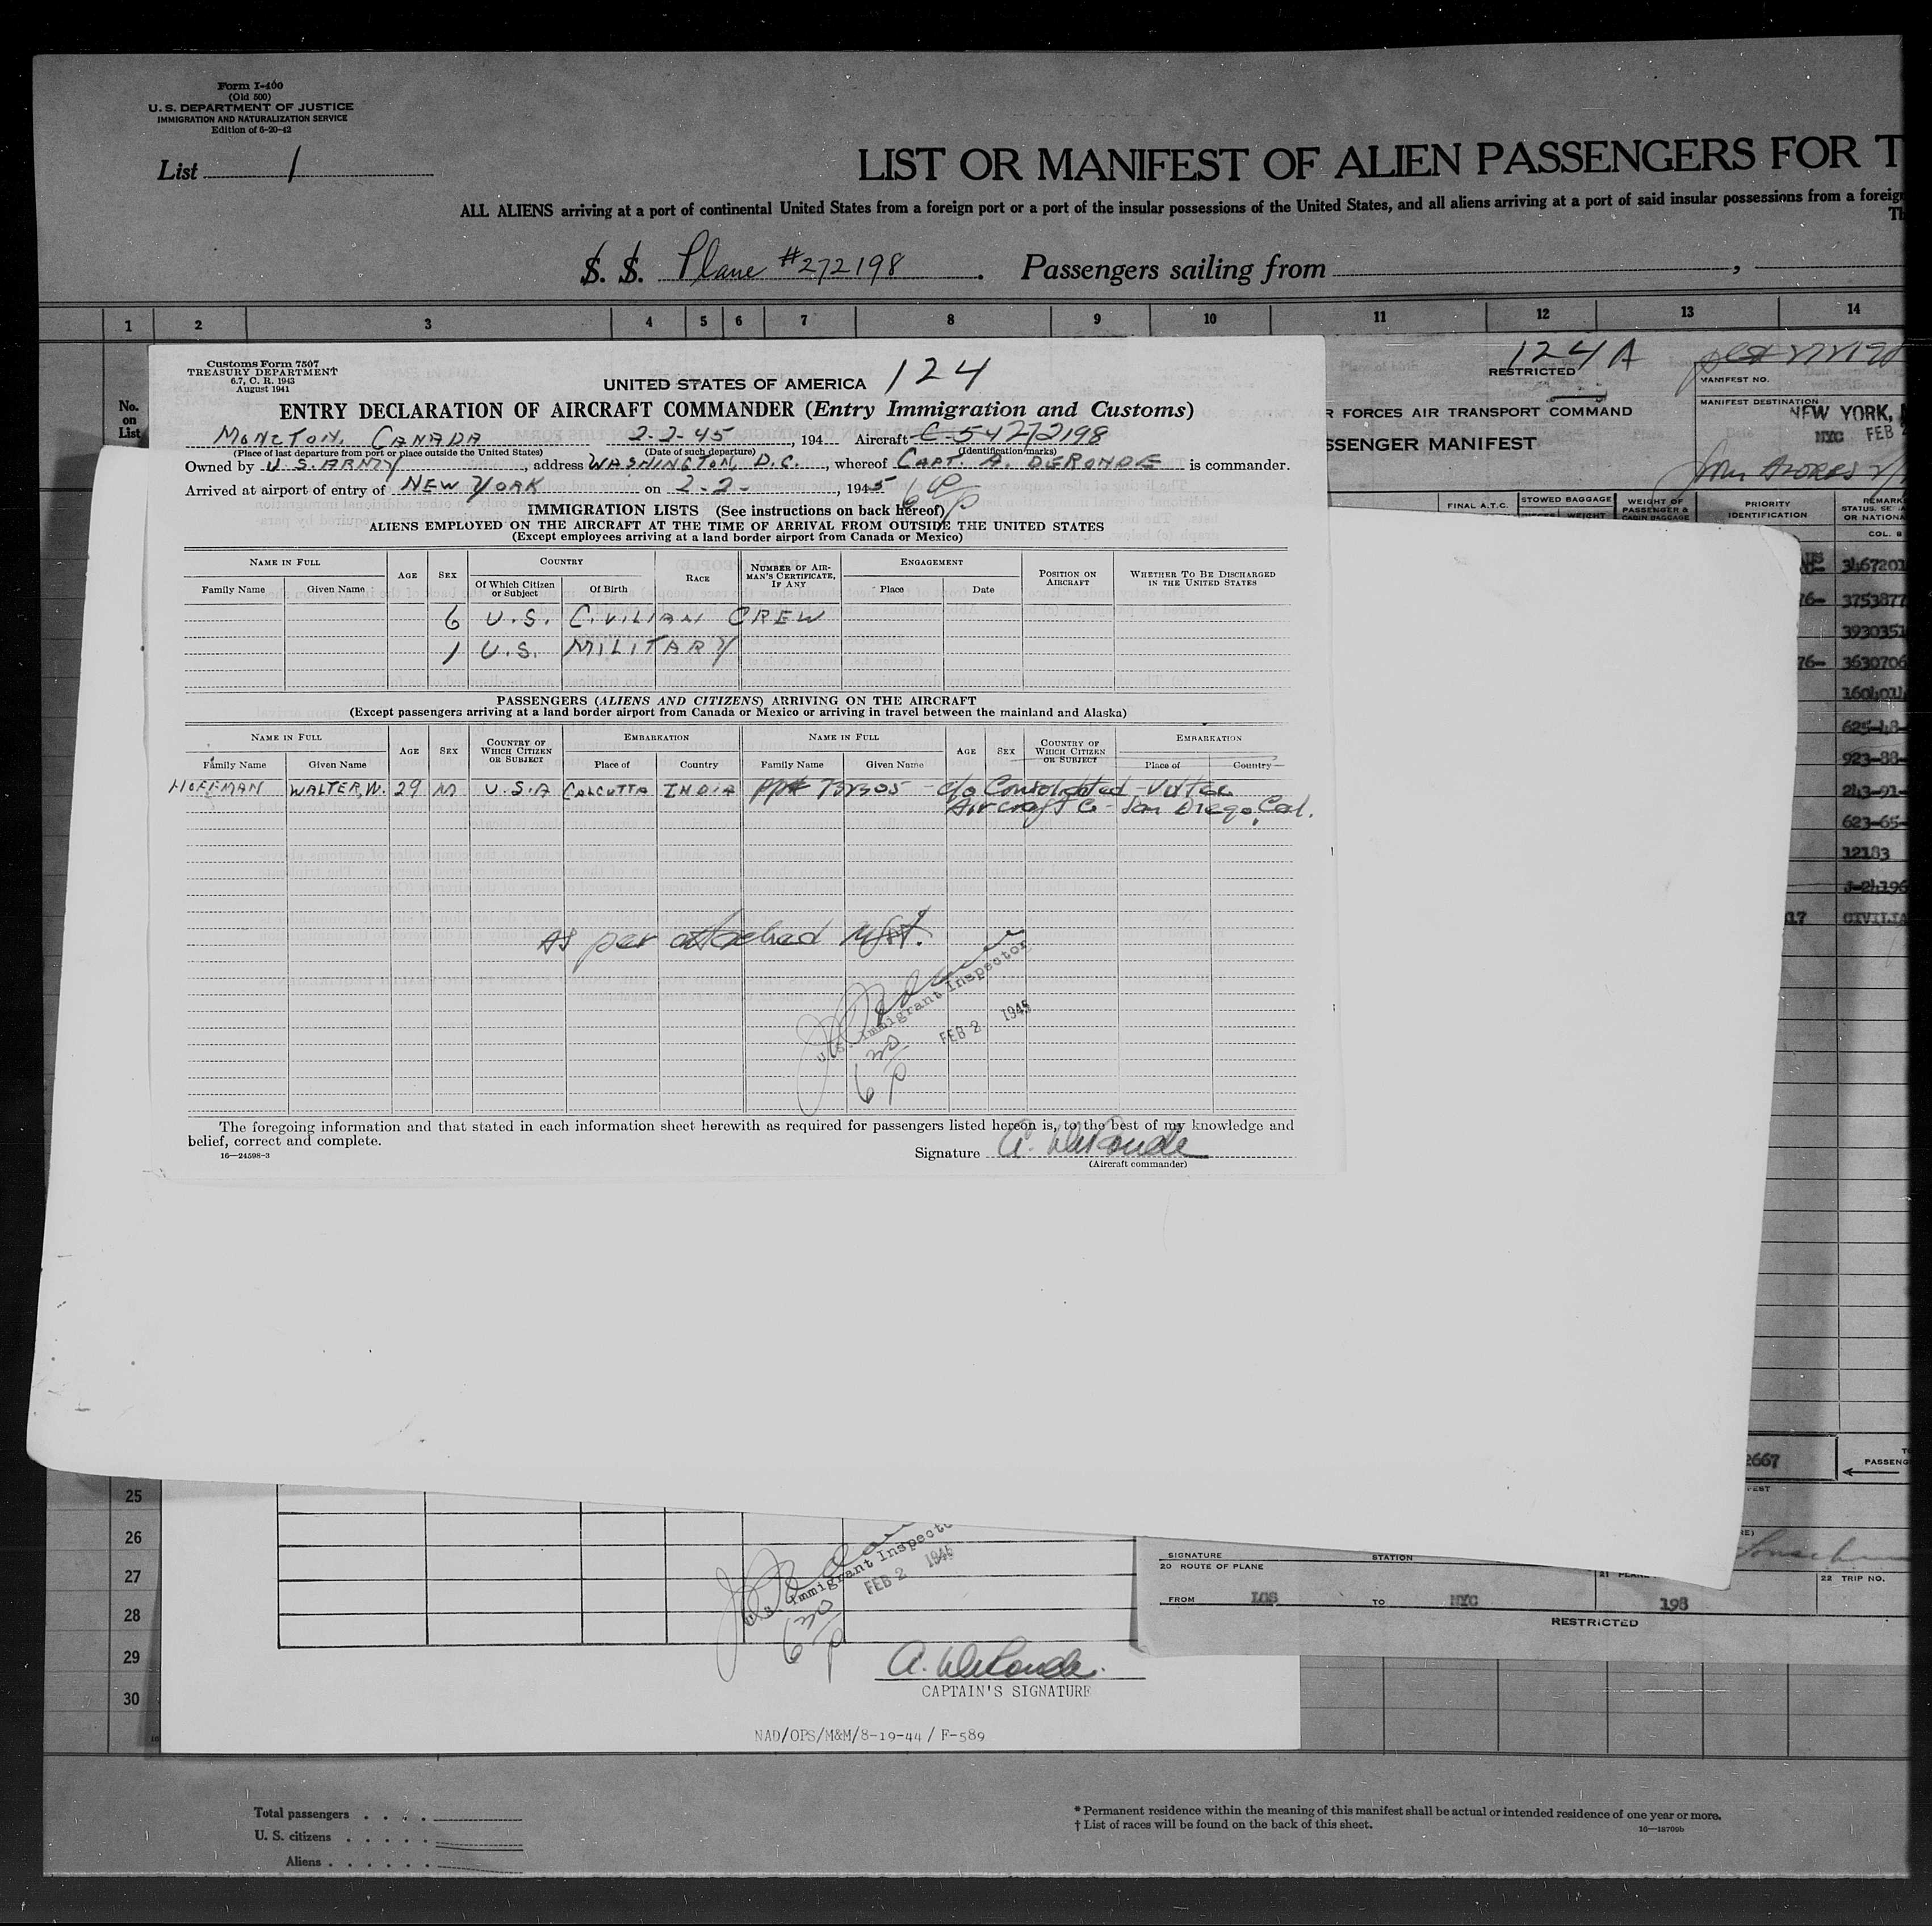 Form I-400
(Old 500)
U. S. DEPARTMENT OF JUSTICE
IMMIGRATION AND NATURALIZATION SERVICE
Edition of 6-20-42
List 1
LIST OR MANIFEST OF ALIEN PASSENGERS FOR T
ALL ALIENS arriving at a port of continental United States from a foreign port or a port of the insular possessions of the United States, and all aliens arriving at a port of said insular possessions from a foreign
Th
S. S. Plane #272198 . Passengers sailing from ,
1 2 3 4 5 6 7 8 9 10 11 12 13 14
No. on List
Customs Form 7507
TREASURY DEPARTMENT
6.7, C. R. 1943
August 1941
UNITED STATES OF AMERICA 124
ENTRY DECLARATION OF AIRCRAFT COMMANDER (Entry Immigration and Customs)
MONCTON, CANADA 2-2-45, 194 Aircraft C-54 272198
(Place of last departure from port or place outside the United States) (Date of such departure) (Identification marks)
Owned by U.S. ARMY, address WASHINGTON, D.C., whereof CAPT. A. DERONDE is commander.
Arrived at airport of entry of NEW YORK on 2-2-, 1945 6 00 P
IMMIGRATION LISTS (See instructions on back hereof)
ALIENS EMPLOYED ON THE AIRCRAFT AT THE TIME OF ARRIVAL FROM OUTSIDE THE UNITED STATES
(Except employees arriving at a land border airport from Canada or Mexico)
NAME IN FULL AGE SEX COUNTRY RACE NUMBER OF AIRMAN'S CERTIFICATE, IF ANY ENGAGEMENT POSITION ON AIRCRAFT WHETHER TO BE DISCHARGED IN THE UNITED STATES
Family Name Given Name Of Which Citizen or Subject Of Birth Place Date
6 U.S. CIVILIAN CREW
1 U.S. MILITARY
PASSENGERS (ALIENS AND CITIZENS) ARRIVING ON THE AIRCRAFT
(Except passengers arriving at a land border airport from Canada or Mexico or arriving in travel between the mainland and Alaska)
NAME IN FULL AGE SEX COUNTRY OF WHICH CITIZEN OR SUBJECT EMBARKATION NAME IN FULL AGE SEX COUNTRY OF WHICH CITIZEN OR SUBJECT EMBARKATION
Family Name Given Name Place of Country Family Name Given Name Place of Country
HOFFMAN WALTER, W. 29 M U.S.A CALCUTTA INDIA PP# c/o Consolidated-Vultee
Aircraft Co - San Diego, Cal.
As per attached Mfst.
U. S. Immigrant Inspector
FEB 2 1945
6 30 P
The foregoing information and that stated in each information sheet herewith as required for passengers listed hereon is, to the best of my knowledge and
belief, correct and complete.
16—24598-3
Signature A. DeRonde
(Aircraft commander)
124 A
RESTRICTED
MANIFEST NO.
R FORCES AIR TRANSPORT COMMAND
SSENGER MANIFEST
MANIFEST DESTINATION
NEW YORK,
NYC FEB 2
from AZORES
FINAL A.T.C. STOWED BAGGAGE WEIGHT OF PASSENGER & CABIN BAGGAGE PRIORITY IDENTIFICATION REMARK
STATUS, SE
OR NATIONA
COL. 8
3467201
76- 3753877
3930351
76- 3630706
160401
625-48-
923-88-
243-91-
623-65-
12183
J-24196
17 CIVILIA
2667
PASSENG
25
26
27
28
29
30
U. S. Immigrant Inspector
FEB 2 1945
6 30 P
A. DeRonde.
CAPTAIN'S SIGNATURE
NAD/OPS/M&M/8-19-44 / F-589
SIGNATURE STATION
20 ROUTE OF PLANE
22 TRIP NO.
FROM LGS TO NYC 198
RESTRICTED
Total passengers
U. S. citizens
Aliens
* Permanent residence within the meaning of this manifest shall be actual or intended residence of one year or more.
† List of races will be found on the back of this sheet.
16—18709b